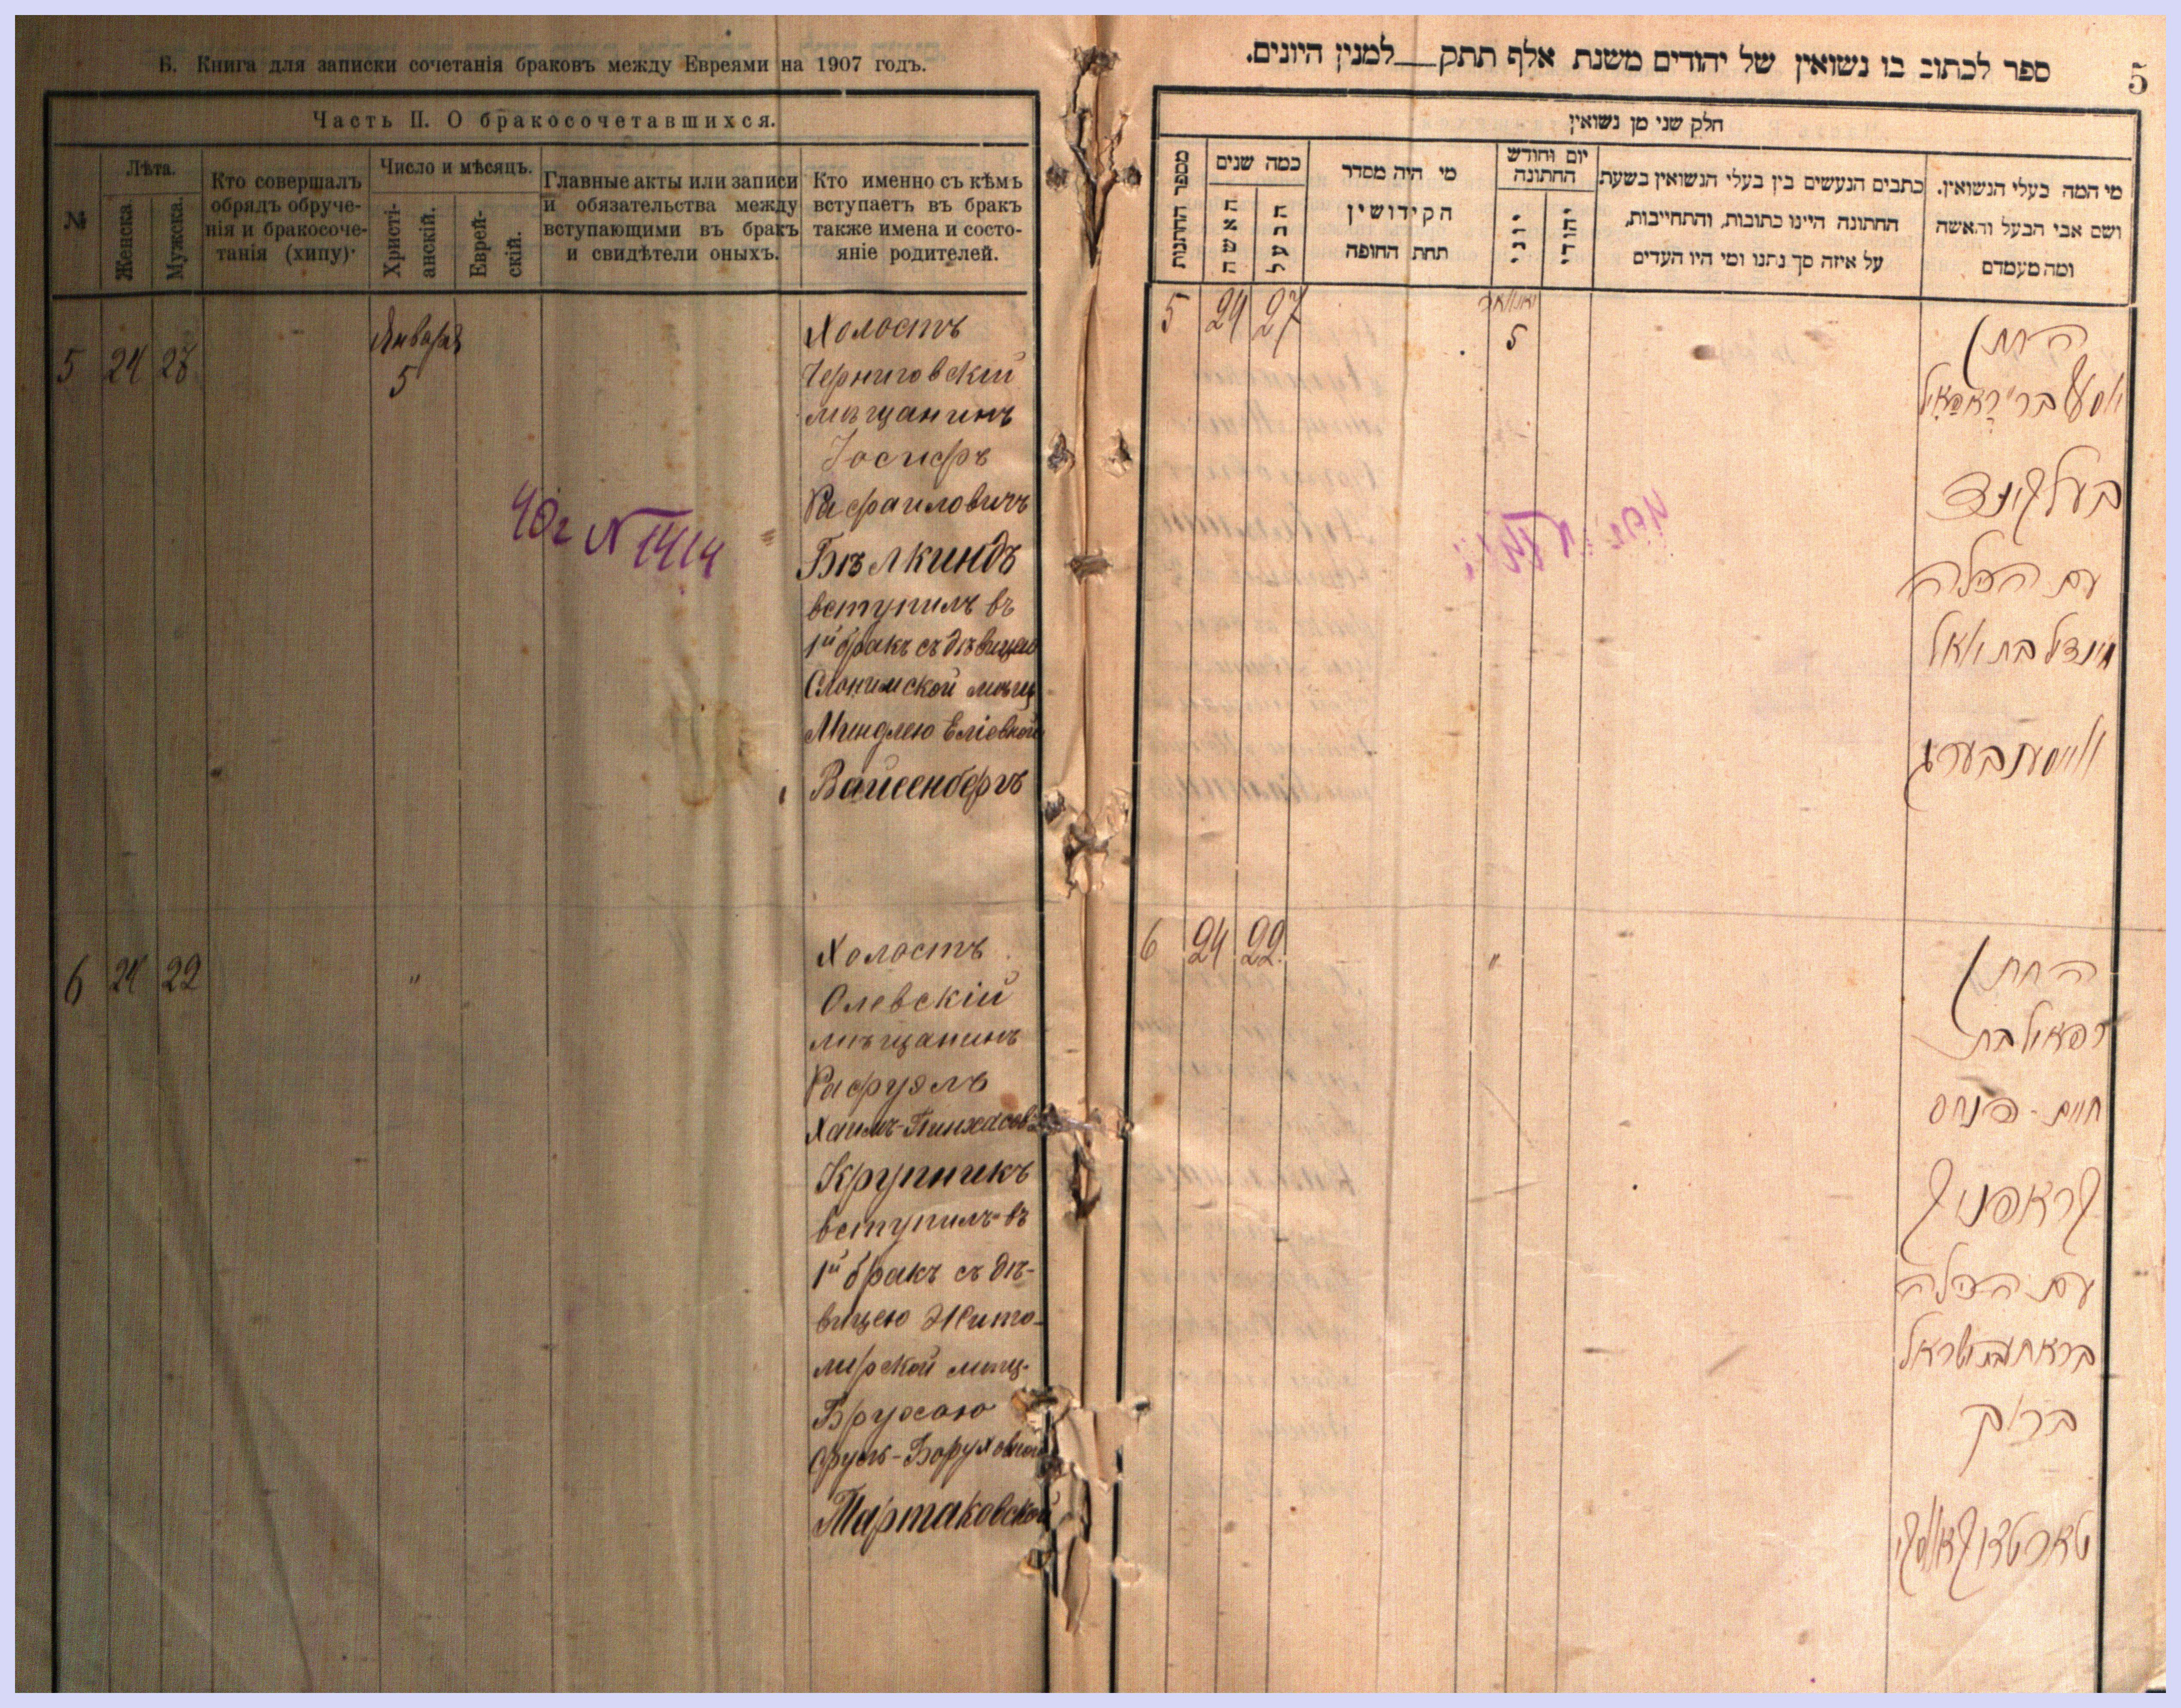 Б. Книга для записки сочетанія браковъ между Евреями на 1907 годъ.
Часть II. О бракосочетавшихся.
№
Лѣта.
Женска.
Мужска.
Кто совершалъ
обрядъ обруче-
нія и бракосоче-
танія (хипу)·
Число и мѣсяцъ.
Христі-
анскій.
Еврей-
скій.
Главные акты или записи
и обязательства между
вступающими въ бракъ
и свидѣтели оныхъ.
Кто именно съ кѣмъ
вступаетъ въ бракъ
также имена и состо-
яніе родителей.
5 24 27
Января
5
Холостъ
Черниговскій
мѣщанинъ
Іосифъ
Рафаиловичъ
Бѣлкиндъ
вступилъ въ
1й бракъ съ дѣвицею
Слонимской мѣщ
Миндлею Еліевной
Вайсенбергъ
40г N 1414
6 24 22 "
Холостъ
Олевскій
мѣщанинъ
Рафуэлъ
Хаимъ-Пинхасов
Крупникъ
вступилъ въ
1й бракъ съ дѣ-
вицею Жито-
мирской мѣщ.
Брухою
Сруль-Боруховной
Тартаковской
ספר לכתוב בו נשואין של יהודים משנת אלף תתק__למנין היונים.
5
חלק שני מן נשואין
מספר החתונות
כמה שנים
האשה
הבעל
מי היה מסדר
הקידושין
תחת החופה
יום וחודש
החתונה
יוני
יהודי
כתבים הנעשים בין בעלי הנשואין בשעת
החתונה היינו כתובות, והתחייבות,
על איזה סך נתנו ומי היו העדים
מי המה בעלי הנשואין.
ושם אבי הבעל והאשה
ומה מעמדם
5 24 27
יאנואר
5
החתן
יוסף בר' רפאל
בעלקינד
עם הכלה
מינדל בת
ווייסענבערג
6 24 22 "
החתן
רפאל בר
חיים - פנחס
קראפניק
עם הכלה
ברוך
טארטאקאווסקי